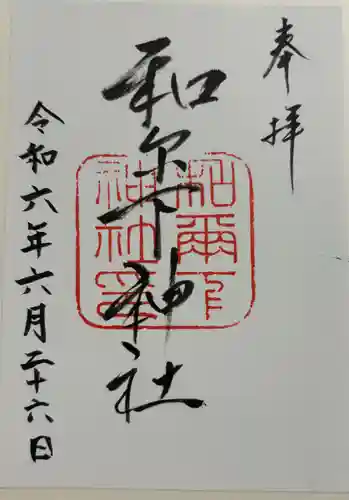 奉拝
和尓下神社
和爾下
神社印
令和六年六月二十六日